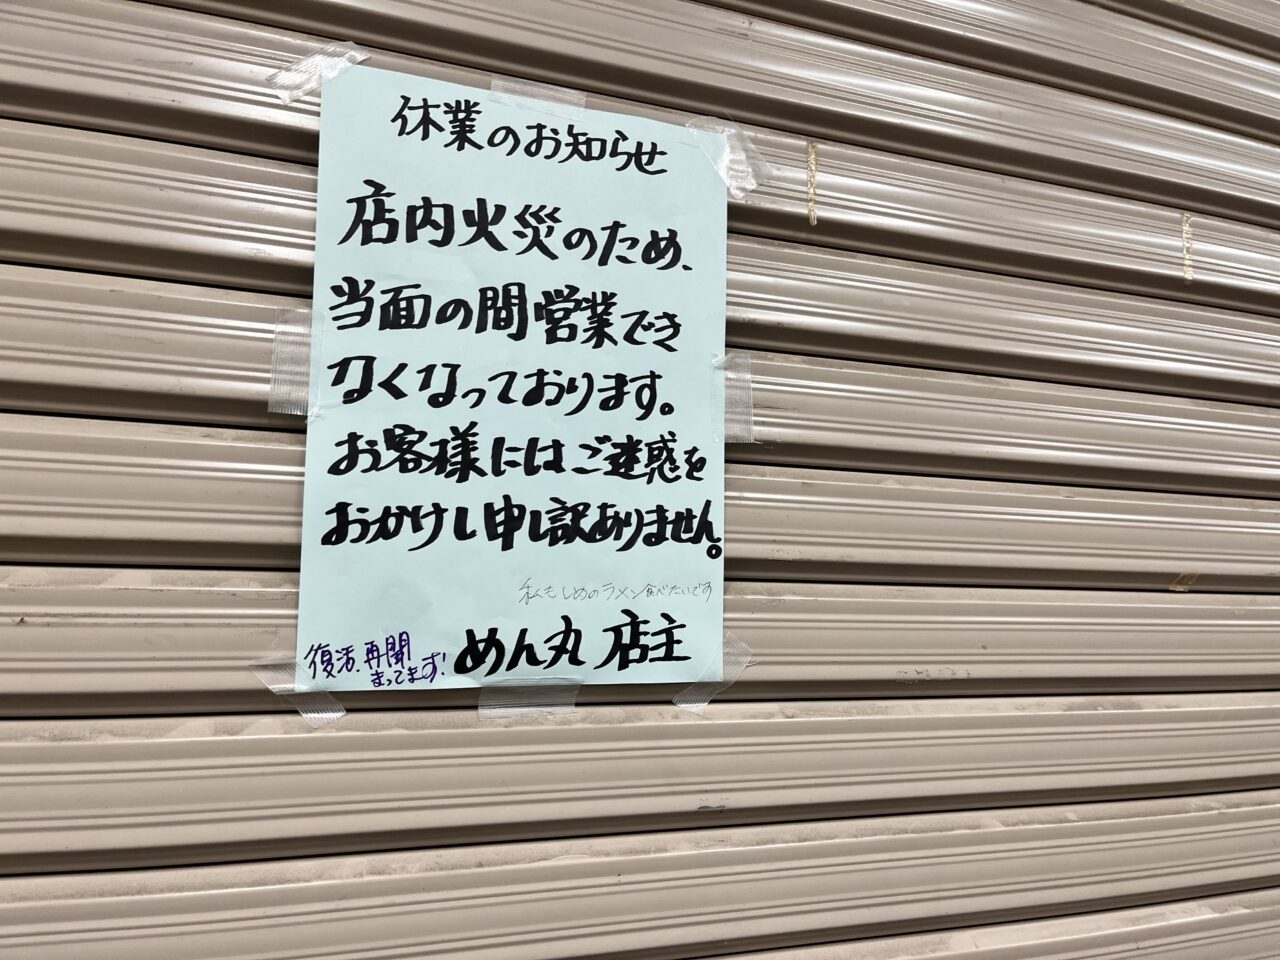 休業のお知らせ
店内火災のため、
当面の間営業でき
なくなっております。
お客様にはご迷惑を
おかけし申し訳ありません。
私もしめのラメン食べたいです
めん丸 店主
復活、再開
まってます!